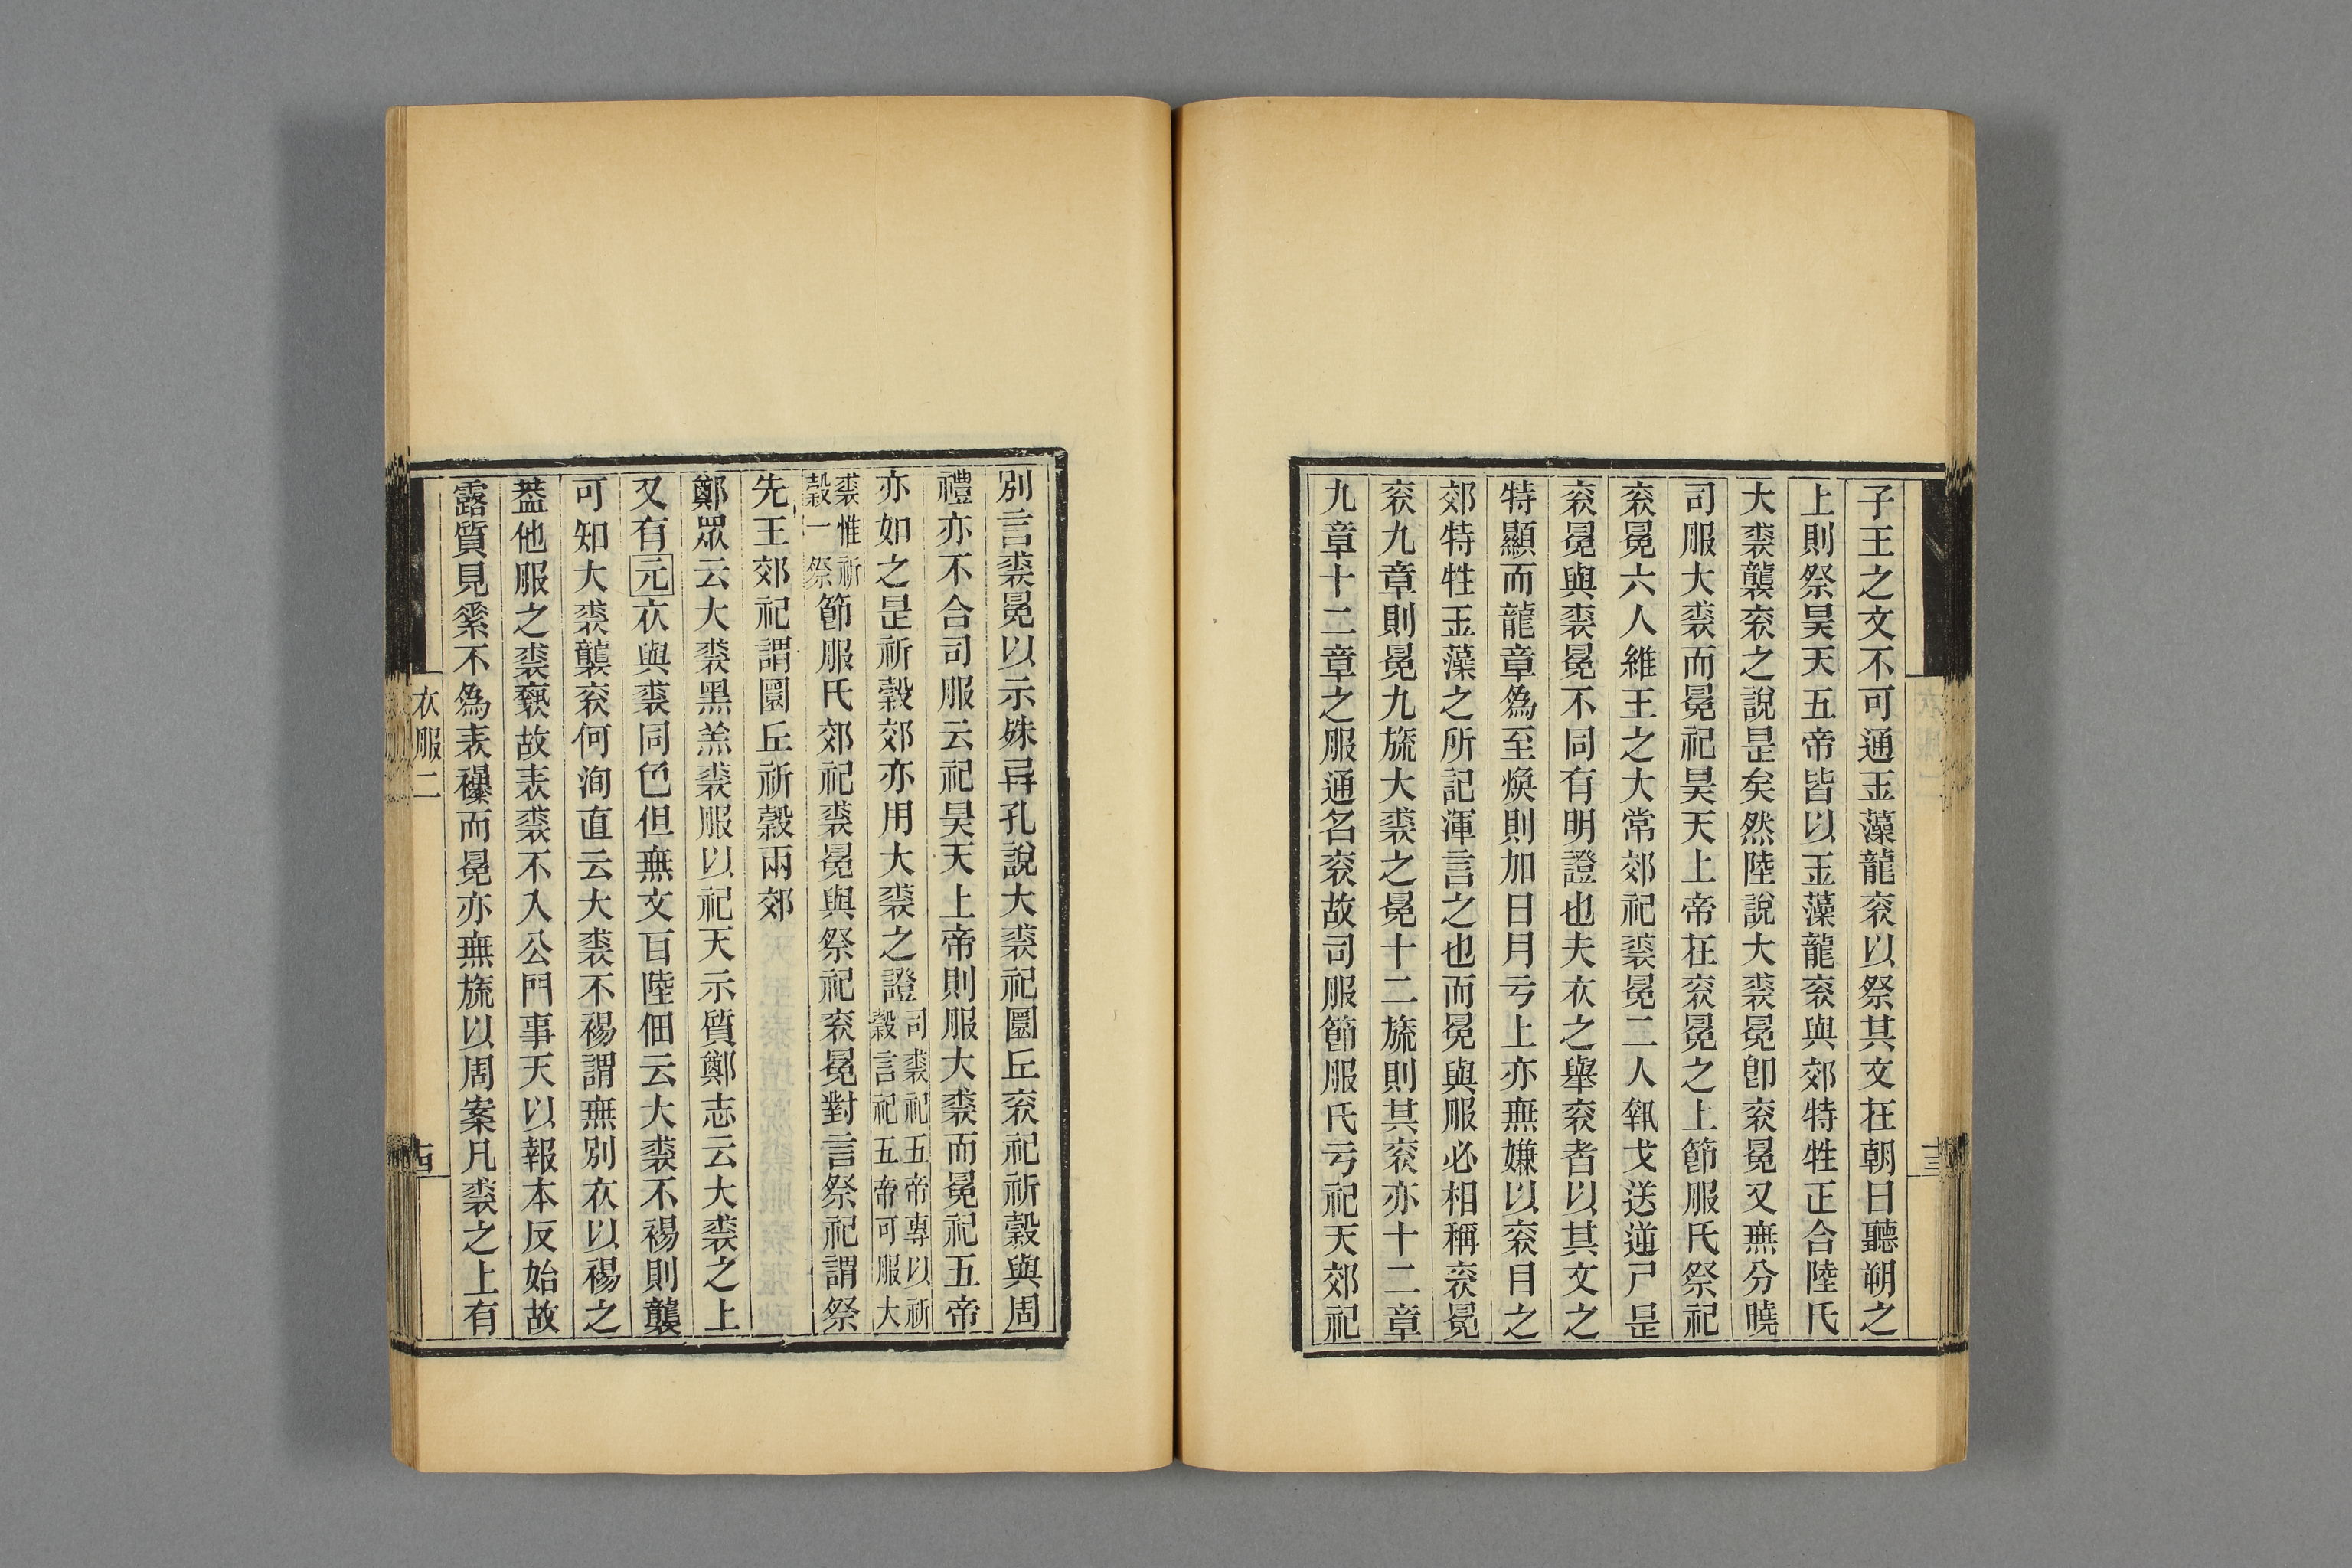 子王之文不可通玉藻龍衮以祭其文在朝日聽朔之
上則祭昊天五帝皆以玉藻龍衮與郊特牲正合陸氏
大裘襲衮之說是矣然陸說大裘冕卽衮冕又無分曉
司服大裘而冕祀昊天上帝在衮冕之上節服氏祭祀
衮冕六人維王之大常郊祀裘冕二人執戈送逆尸是
衮冕與裘冕不同有明證也夫衣之舉衮者以其文之
特顯而龍章爲至煥則加日月于上亦無嫌以衮目之
郊特牲玉藻之所記渾言之也而冕與服必相稱衮冕
衮九章則冕九旒大裘之冕十二旒則其衮亦十二章
九章十二章之服通名衮故司服節服氏于祀天郊祀
別言裘冕以示殊異孔說大裘祀圜丘衮祀祈穀與周
禮亦不合司服云祀昊天上帝則服大裘而冕祀五帝
亦如之是祈穀郊亦用大裘之證司裘祀五帝專以祈
穀言祀五帝可服大
裘惟祈
穀一祭節服氏郊祀裘冕與祭祀衮冕對言祭祀謂祭
先王郊祀謂圜丘祈穀兩郊
鄭眾云大裘黑羔裘服以祀天示質鄭志云大裘之上
又有元衣與裘同色但無文百陸佃云大裘不裼則襲
可知大裘襲衮何洵直云大裘不裼謂無別衣以裼之
葢他服之裘褻故表裘不入公門事天以報本反始故
露質見䌛不爲表襮而冕亦無旒以周案凡裘之上有
衣服二
十四
十三